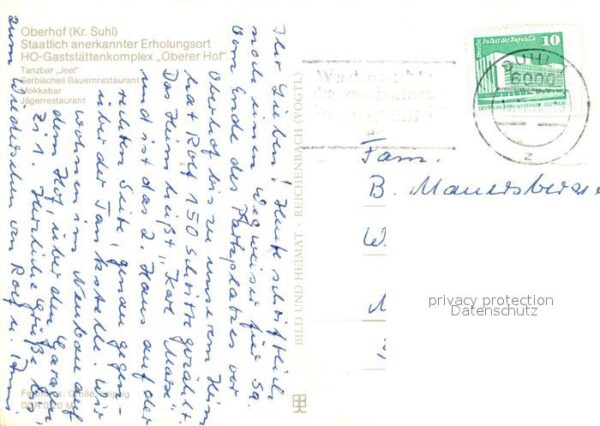 Oberhof (Kr. Suhl)
Staatlich anerkannter Erholungsort
HO-Gaststättenkomplex „Oberer Hof"
Tanzbar „Joel"
Serbisches Bauernrestaurant
Mokkabar
Jägerrestaurant
Ihr Lieben! Heute schriftlich
noch einen Wegweiser für Sa.
Vom Ende des Parkplatzes vor
Oberhof bis zu unserem Heim
hat Rolf 150 Schritte gezählt.
Das Heim heißt "Karl Marx"
und ist das 2. Haus auf der
rechten Seite, gerade gegen-
über der Tankstelle. Wir
wohnen im Neubau auf
dem Hof, über den Garagen,
Zi 1. Herzliche Grüße bis
zum Wiedersehen von Rolf u.
BILD UND HEIMAT · REICHENBACH (VOGTL)
Berlin, Palast der Republik
10
SUHL
6000
2
Fam.
B. Mauersberger
W.
privacy protection
Datenschutz